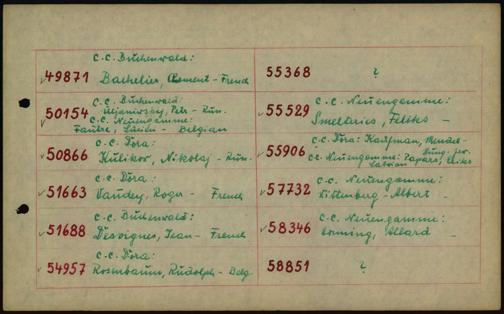 C.C. Buchenwald:
49871 Bachelier, Clement - French
C.C. Buchenwald:
50154 Petr - Rus.
C.C. Neuengamme:
Faure, Lucien - Belgian
C.C. Dora:
50866 Kulikov, Nikolaj - Rus.
C.C. Dora:
51663 Vaudey, Roger - French
C.C. Buchenwald:
51688 Desvignes, Jean - French
C.C. Dora:
54957 Rosenbaum, Rudolph - Belg.
55368 ?
C.C. Neuengamme:
55529 Smeltaries, -
C.C. Dora: Kaufman, Mendel -
55906 Hung. Jew.
CC. Neuengamme:
Latvian
C.C. Neuengamme:
57732 Wittenberg - Albert -
C.C. Neuengamme:
58346 Allard -
58851 ?